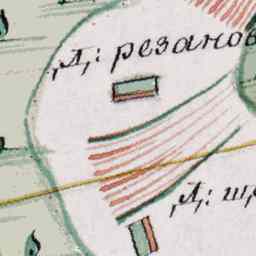 Д: резанов
Д: ш